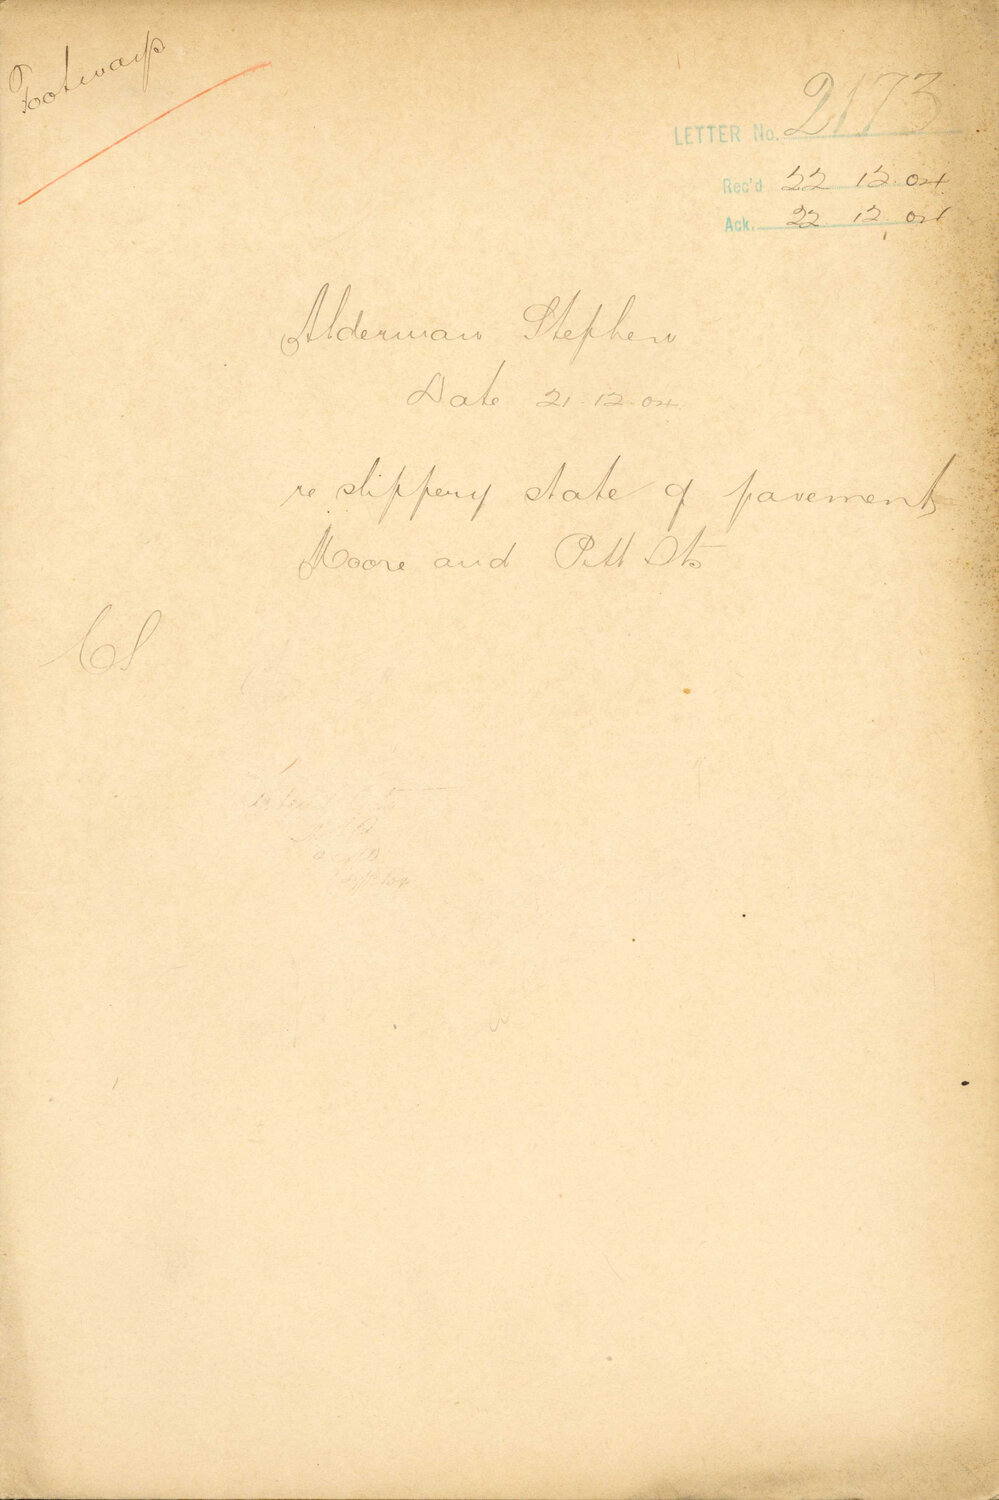 Footways
LETTER No. 2173
Rec'd 22 12 04
Ack. 22 12 04
Alderman Stephen
Date 21.12.04
re slippery state of pavement
Moore and Pitt Sts
CS